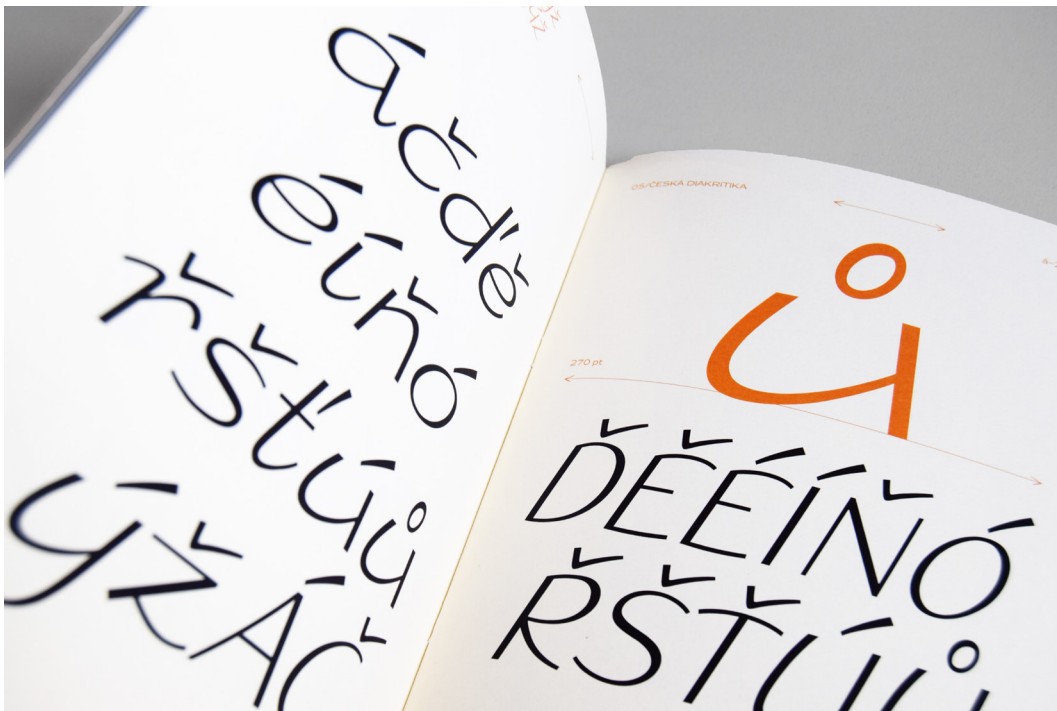 áčďě
éíňó
řšťúů
ýžÁČ
05/ČESKÁ DIAKRITIKA
ů
270 pt
ĎĚÉÍŇÓ
ŘŠŤÚŮ